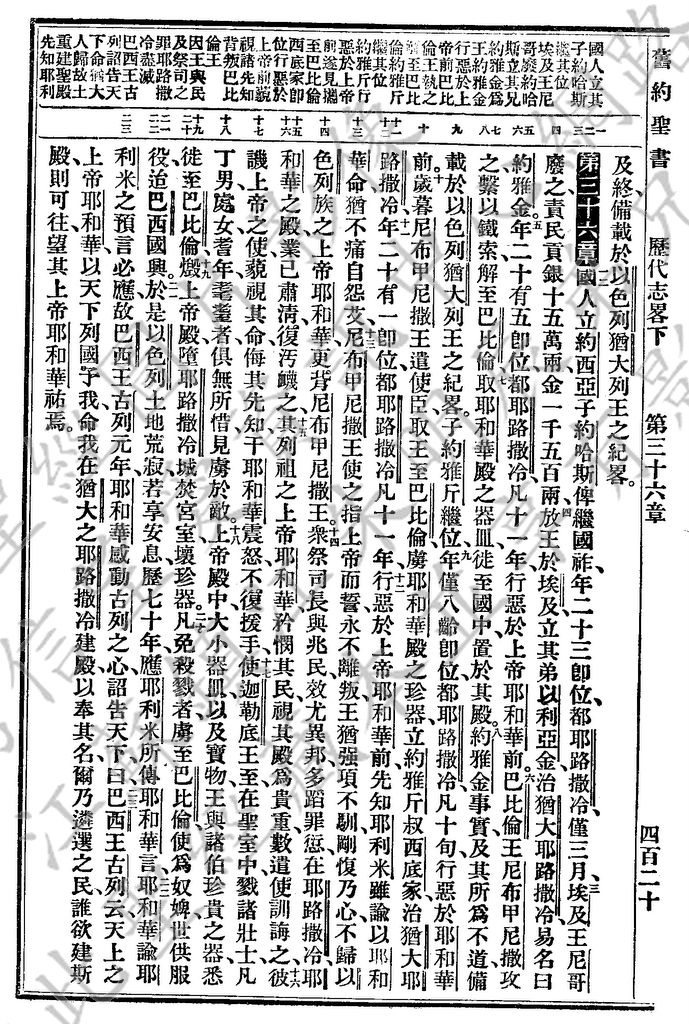 舊約聖書　歷代志畧下　第三十六章　四百二十
國人立其
子約哈斯
繼其位
埃及王尼
哥廢約哈
斯立其兄
約雅金爲
王約雅金
行惡於上
帝前巴比
倫王執之
解至巴比
倫約雅斤
繼其位
約雅斤行
惡於上帝
前遂見攜
至巴比倫
西底家卽
位行惡於
上帝前藐
視諸先知
背叛巴比
倫王
因王與民
及祭司之
罪耶路撒
冷盡滅
巴西王古
列詔告天
下命猶大
人歸故土
重建聖殿
先知耶利
一 二 三 四 五 六 七 八 九 十 十一 十二 十三 十四 十五 十六 十七 十八 十九 二十 二一 二二 二三
及終備載於以色列猶大列王之紀畧。
第三十六章 國人立約西亞子約哈斯俾繼國祚年二十三卽位都耶路撒冷僅三月埃及王尼哥
廢之責民貢銀十五萬兩金一千五百兩放王於埃及立其弟以利亞金治猶大耶路撒冷易名曰
約雅金年二十有五卽位都耶路撒冷凡十一年行惡於上帝耶和華前巴比倫王尼布甲尼撒攻
之繫以鐵索解至巴比倫取耶和華殿之器皿徙至國中置於其殿約雅金事實及其所爲不道備
載於以色列猶大列王之紀畧子約雅斤繼位年僅八齡卽位都耶路撒冷凡十旬行惡於耶和華
前歲暮尼布甲尼撒王遣使臣取王至巴比倫虜耶和華殿之珍器立約雅斤叔西底家治猶大耶
路撒冷年二十有一卽位都耶路撒冷凡十一年行惡於上帝耶和華前先知耶利米雖諭以耶和
華命猶不痛自怨艾尼布甲尼撒王使之指上帝而誓永不離叛王猶强項不馴剛愎乃心不歸以
色列族之上帝耶和華更背尼布甲尼撒王衆祭司長與兆民效尤異邦多蹈罪愆在耶路撒冷耶
和華之殿業已肅淸復汚衊之其列祖之上帝耶和華矜憫其民視其殿爲貴重數遣使訓誨之彼
譏上帝之使藐視其命侮其先知干耶和華震怒不復援手使迦勒底王至在聖室中戮諸壯士凡
丁男處女耆年耄耋者俱無所惜見虜於敵上帝殿中大小器皿以及寶物王與諸伯珍貴之器悉
徙至巴比倫燬上帝殿墮耶路撒冷城焚宮室壞珍器凡免殺戮者虜至巴比倫使爲奴婢世供服
役迨巴西國興於是以色列土地荒寂若享安息歷七十年應耶利米所傳耶和華言耶和華諭耶
利米之預言必應故巴西王古列元年耶和華感動古列之心詔告天下曰巴西王古列云天上之
上帝耶和華以天下列國予我命我在猶大之耶路撒冷建殿以奉其名爾乃遴選之民誰欲建斯
殿則可往望其上帝耶和華祐焉。